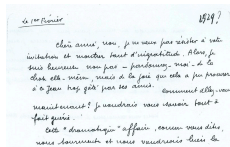 le 1er Février
1929?
Chère amie, non, je ne veux pas résister à votre
invitation et montrer tant d'ingratitude. Alors, je
suis heureux non pas – pardonnez-moi – de la
chose elle-même, mais de la joie que cela a pu procurer
à Jean trop gâté par ses amis.
Comment allez-vous
maintenant? Je voudrais vous savoir tout à
fait guérie.
Cette "dramatique" affaire, comme vous dites,
nous tourmente et nous voudrions bien la